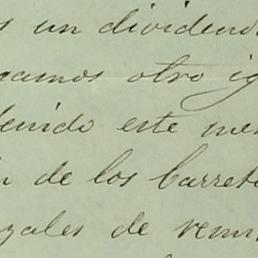 s un dividend
gamos otro ig
tenido este me
n de los Carret
zales de remi